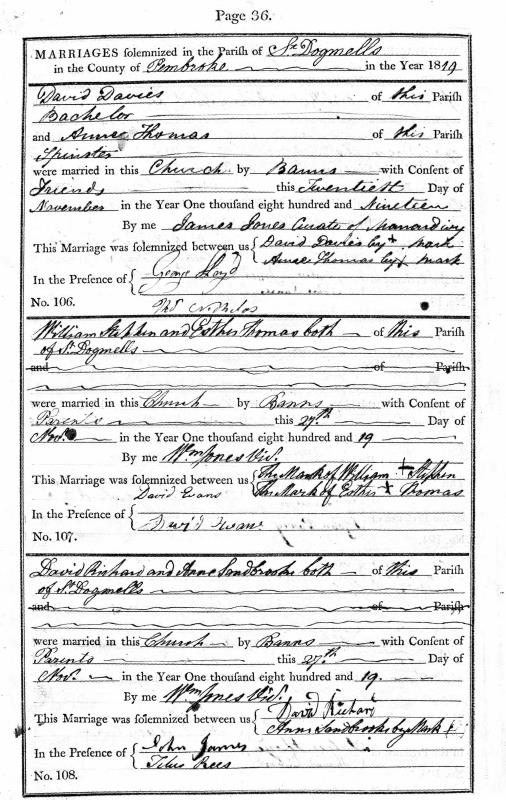 Page 36.
MARRIAGES solemnized in the Parish of St. Dogmells
in the County of Pembroke in the Year 1819
David Davies of this Parish
Bachelor
and Anne Thomas of this Parish
Spinster
were married in this Church by Banns with Consent of
Friends this Twentieth Day of
November in the Year One thousand eight hundred and Nineteen
By me James Jones Curate of Manordivy
This Marriage was solemnized between us David Davies by + Mark
Anne Thomas by + Mark
In the Presence of George Lloyd
No. 106.
William Stephen and Esther Thomas both of this Parish
of St. Dogmells
and of Parish
were married in this Church by Banns with Consent of
Parents this 27th Day of
Novr. in the Year One thousand eight hundred and 19
By me Wm Jones Vic.
This Marriage was solemnized between us The Mark of William + Stephen
David Evans The Mark of Esther + Thomas
In the Presence of
David Evans
No. 107.
David Richard and Anne Sandbrooke both of this Parish
of St. Dogmells
and of Parish
were married in this Church by Banns with Consent of
Parents this 27th Day of
Novr. in the Year One thousand eight hundred and 19.
By me Wm Jones Vic.
This Marriage was solemnized between us David Richard
Anne Sandbrooke by Mark +
In the Presence of John James
Titus Rees
No. 108.